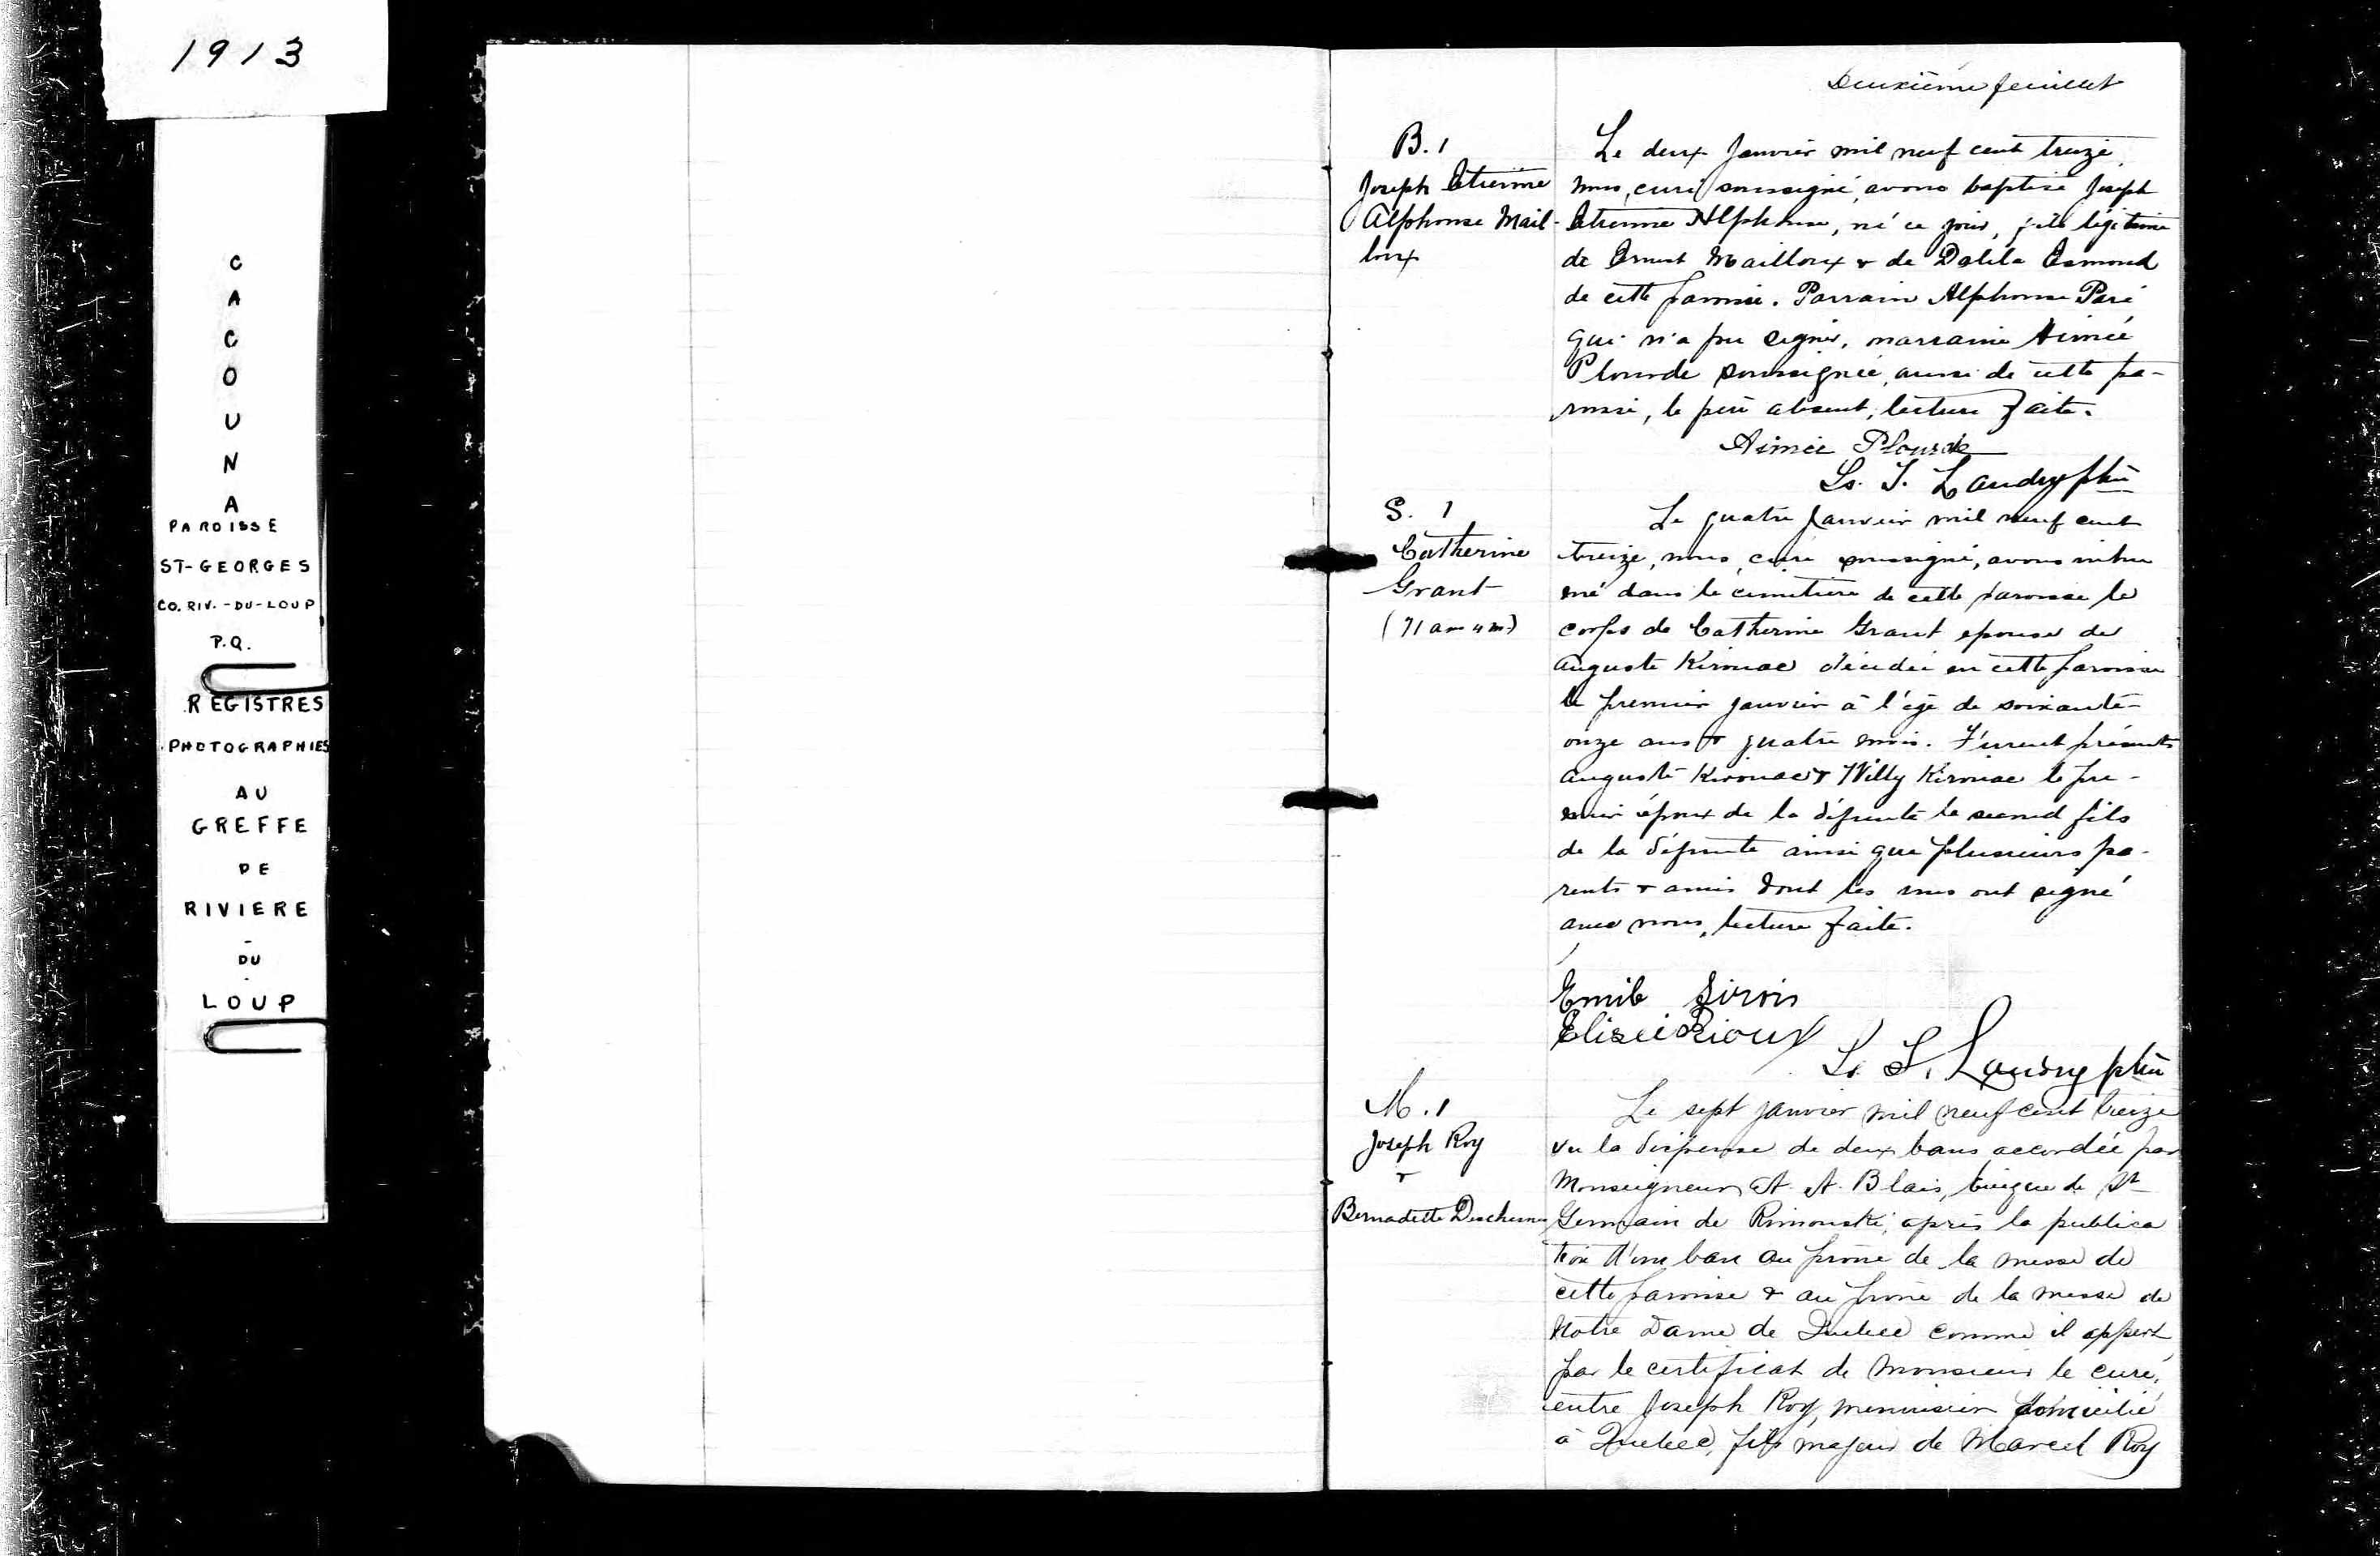 1913
C
A
C
O
U
N
A
PAROISSE
ST-GEORGES
CO. RIV.-DU-LOUP
P.Q.
REGISTRES
PHOTOGRAPHIES
AU
GREFFE
DE
RIVIERE
-
DU
-
LOUP
Deuxième feuillet
B. 1
Joseph Etienne
Alphonse Mail-
loux
Le deux Janvier mil neuf cent treize,
nous, curé soussigné, avons baptisé Joseph
Etienne Alphonse, né ce jour, fils légitime
de Ernest Mailloux & de Dalila Esmond
de cette paroisse. Parrain Alphonse Paré
qui n'a pu signer, marraine Aimée
Plourde soussignée, aussi de cette pa-
roisse, le père absent, lecture faite.
Aimée Plourde
Ls. J. Landry ptre
S. 1
Catherine
Grant
(71 ans 4 m.)
Le quatre Janvier mil neuf cent
treize, nous, curé soussigné, avons inhu
mé dans le cimetière de cette paroisse le
corps de Catherine Grant epouse de
Auguste Kirouac décédée en cette paroisse
le premier janvier à l'âge de soixante-
onze ans & quatre mois. Furent présents
Auguste Kirouac & Willy Kirouac le pre-
mier époux de la défunte le second fils
de la défunte ainsi que plusieurs pa-
rents & amis dont les uns ont signé
avec nous, lecture faite.
Emile Sirois
Elisée Rioux
Ls. J. Landry ptre
M. 1
Joseph Roy
&
Bernadette Deschenes
Le sept janvier mil neuf cent treize
vu la dispense de deux bans accordée par
Monseigneur A. A. Blais, évêque de St
Germain de Rimouski, après la publica
tion d'un ban au prône de la messe de
cette paroisse & au prône de la messe de
Notre Dame de Quebec comme il appert
par le certificat de Monsieur le curé,
entre Joseph Roy, menuisier domicilié
à Quebec, fils majeur de Marcel Roy